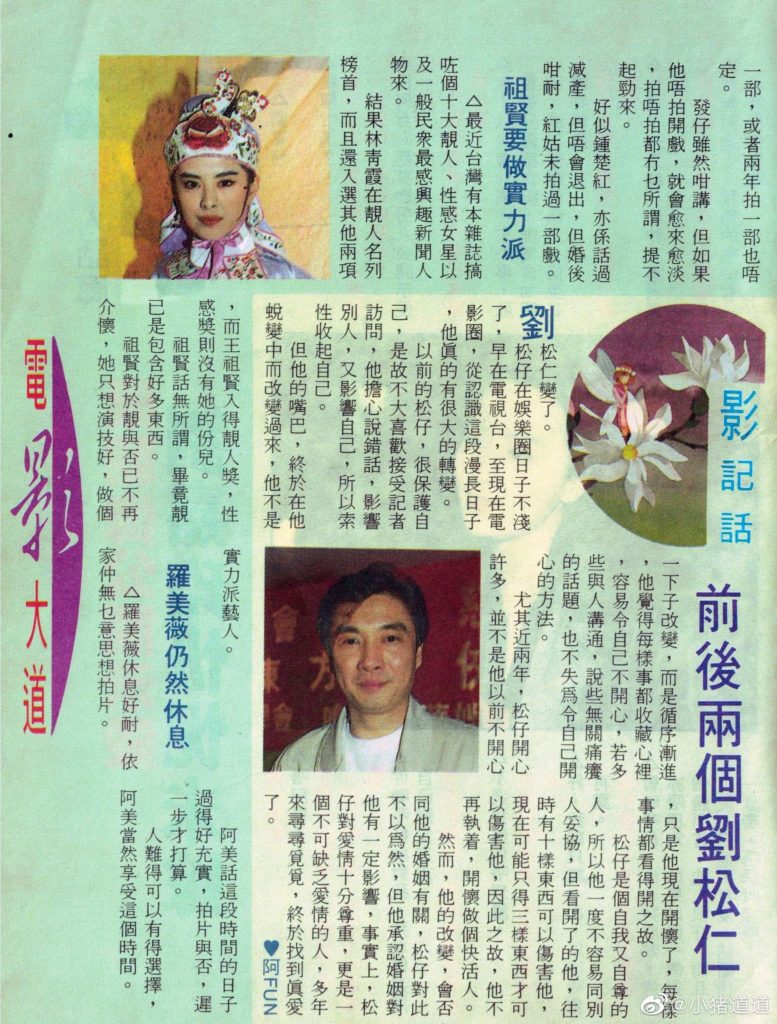 一部，或者兩年拍一部也唔
定。
發仔雖然咁講，但如果
他唔拍開戲，就會愈來愈淡
，拍唔拍都冇乜所謂，提不
起勁來。
好似鍾楚紅，亦係話過
減產，但唔會退出，但婚後
咁耐，紅姑未拍過一部戲。
祖賢要做實力派
△最近台灣有本雜誌搞
咗個十大靚人、性感女星以
及一般民衆最感興趣新聞人
物來。
結果林青霞在靚人名列
榜首，而且還入選其他兩項
，而王祖賢入得靚人獎，性
感獎則沒有她的份兒。
祖賢話無所謂，畢竟靚
已是包含好多東西。
祖賢對於靚與否已不再
介懷，她只想演技好，做個
實力派藝人。
羅美薇仍然休息
△羅美薇休息好耐，依
家仲無乜意思想拍片。
阿美話這段時間的日子
過得好充實，拍片與否，遲
一步才打算。
人難得可以有得選擇，
阿美當然享受這個時間。
電影大道
影記話
前後兩個劉松仁
劉松仁變了。
松仔在娛樂圈日子不淺
了，早在電視台，至現在電
影圈，從認識這段漫長日子
，他眞的有很大的轉變。
以前的松仔，很保護自
己，是故不大喜歡接受記者
訪問，他擔心說錯話，影響
別人，又影響自己，所以索
性收起自己。
但他的嘴巴，終於在他
蛻變中而改變過來，他不是
一下子改變，而是循序漸進
，他覺得每樣事都收藏心裡
，容易令自己不開心，若多
些與人溝通，說些無關痛癢
的話題，也不失爲令自己開
心的方法。
尤其近兩年，松仔開心
許多，並不是他以前不開心
，只是他現在開懷了，每樣
事情都看得開之故。
松仔是個自我又自尊的
人，所以他一度不容易同別
人妥協，但看開了的他，往
時有十樣東西可以傷害他，
現在可能只得三樣東西才可
以傷害他，因此之故，他不
再執着，開懷做個快活人。
然而，他的改變，會否
同他的婚姻有關，松仔對此
不以爲然，但他承認婚姻對
他有一定影響，事實上，松
仔對愛情十分尊重，更是一
個不可缺乏愛情的人，多年
來尋尋覓覓，終於找到眞愛
了。
♥阿FUN
@小猪道道